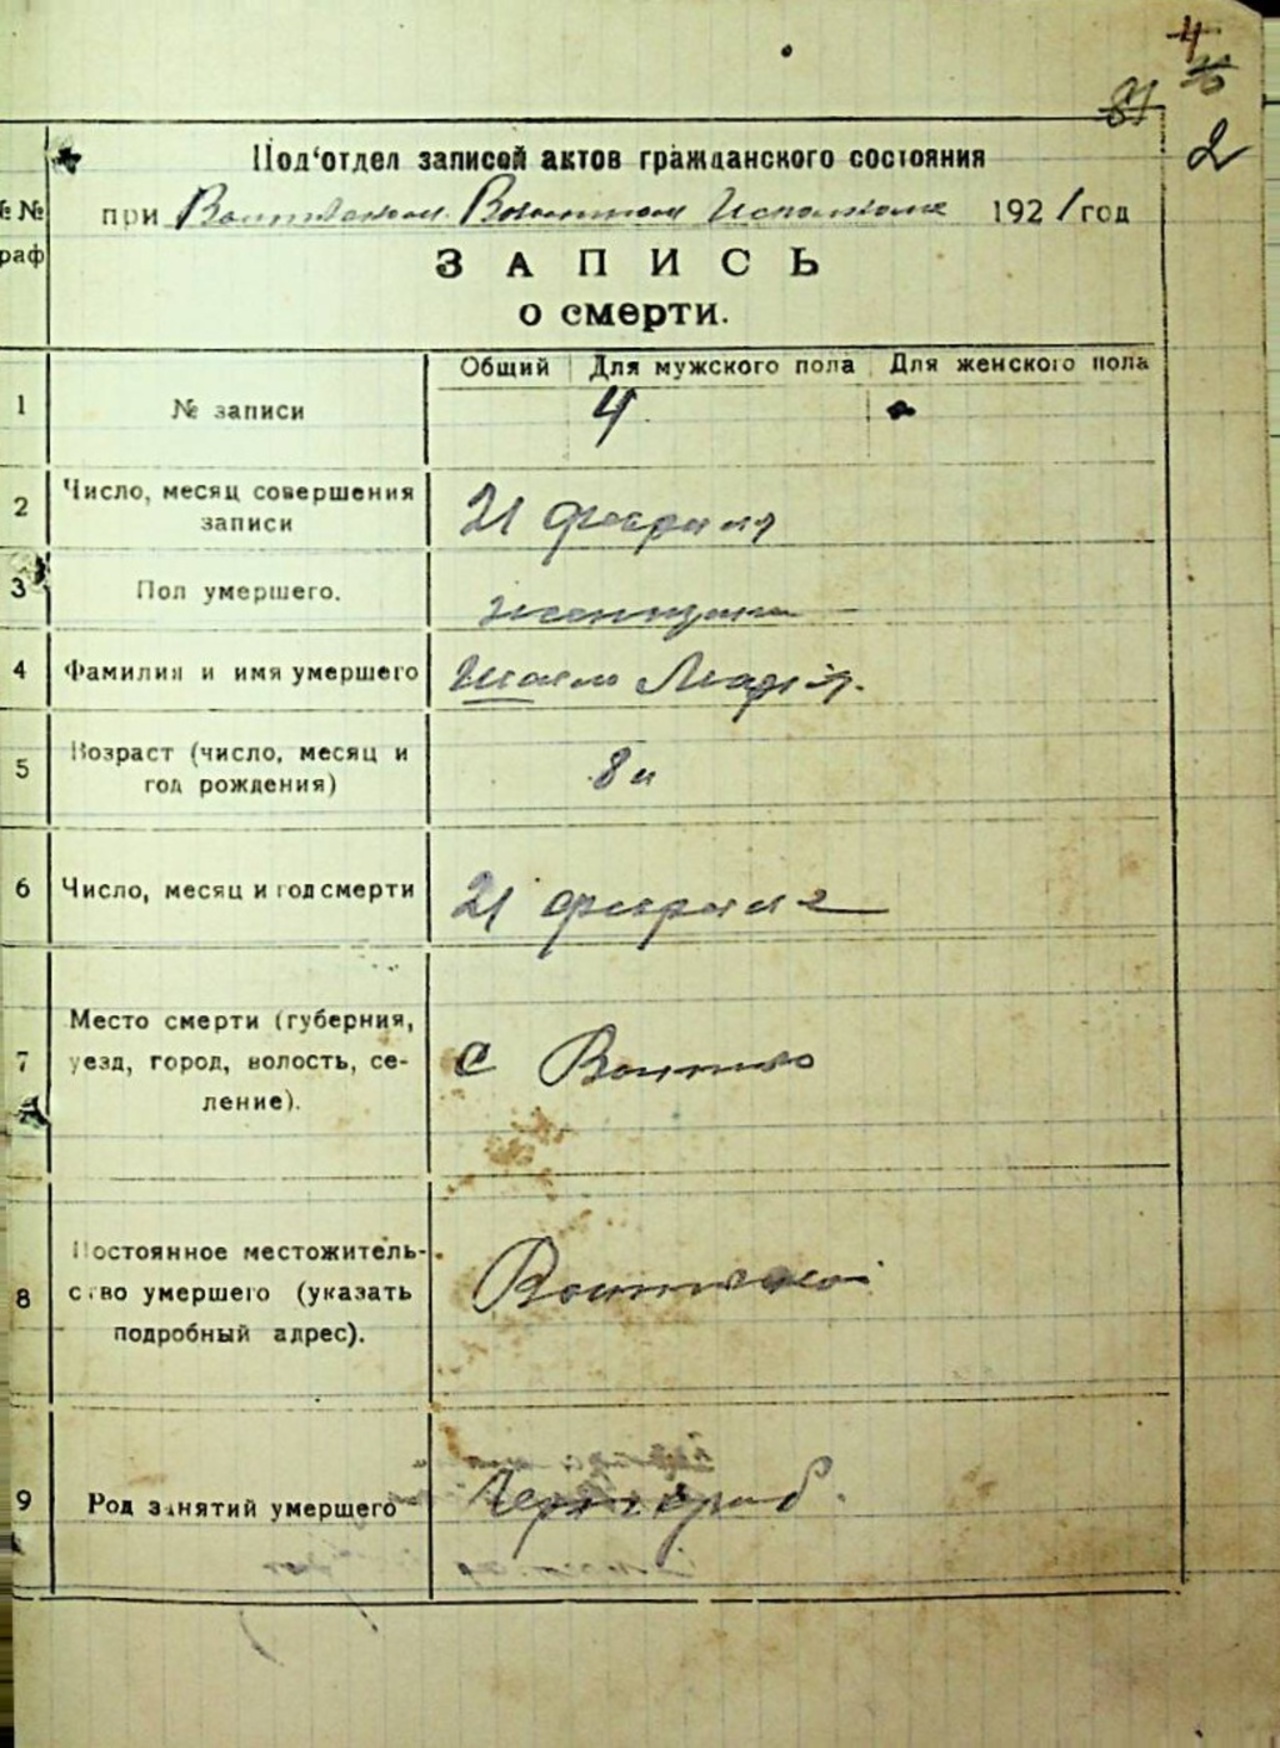 4
2
Под'отдел записей актов гражданского состояния
№ №
раф
при Исполкоме 1921 год
ЗАПИСЬ
о смерти.
Общий Для мужского пола Для женского пола
1 № записи 4
2 Число, месяц совершения
записи 21 февраля
3 Пол умершего. женщина
4 Фамилия и имя умершего Мария.
5 Возраст (число, месяц и
год рождения) 8 м
6 Число, месяц и год смерти 21 февраля
7 Место смерти (губерния,
уезд, город, волость, се-
ление). с
8 Постоянное местожитель-
ство умершего (указать
подробный адрес).
9 Род занятий умершего